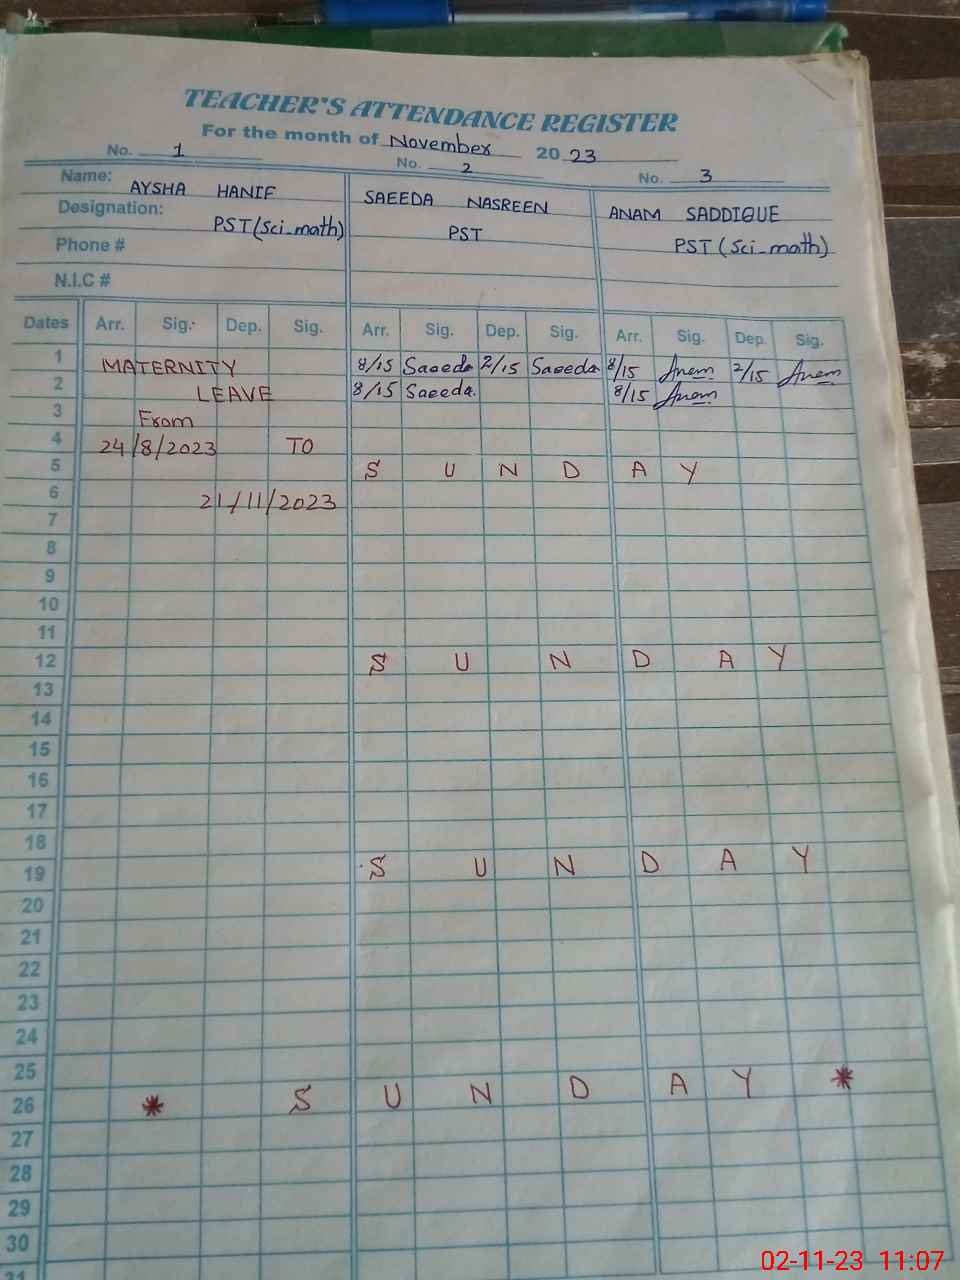 TEACHER'S ATTENDANCE REGISTER
For the month of November 2023
No. 1 No. 2 No. 3
Name: AYSHA HANIF SAEEDA NASREEN ANAM SADDIQUE
Designation: PST(Sci_math) PST PST(Sci_math)
Phone #
N.I.C #
Dates Arr. Sig. Dep. Sig. Arr. Sig. Dep. Sig. Arr. Sig. Dep. Sig.
1 MATERNITY 8/15 Saeeda 2/15 Saeeda 8/15 Anam 2/15 Anam
2 LEAVE 8/15 Saeeda. 8/15 Anam
3 From
4 24/8/2023 TO
5 S U N D A Y
6 21/11/2023
7
8
9
10
11
12 S U N D A Y
13
14
15
16
17
18
19 S U N D A Y
20
21
22
23
24
25
26 * S U N D A Y *
27
28
29
30
31
02-11-23 11:07